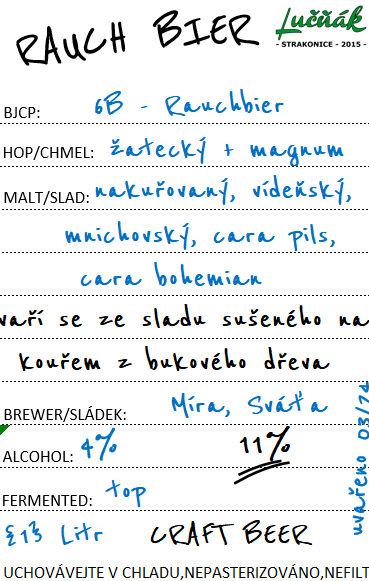 RAUCH BIER
Lučňák
- STRAKONICE - 2015 -
BJCP: 6B - Rauchbier
HOP/CHMEL: žatecký + magnum
MALT/SLAD: nakuřovaný, vídeňský,
mnichovský, cara pils,
cara bohemian
vaří se ze sladu sušeného na
kouřem z bukového dřeva
BREWER/SLÁDEK: Míra, Sváťa
ALCOHOL: 4% 11%
uvařeno 03/24
FERMENTED: top
Litr CRAFT BEER
UCHOVÁVEJTE V CHLADU,NEPASTERIZOVÁNO,NEFILT